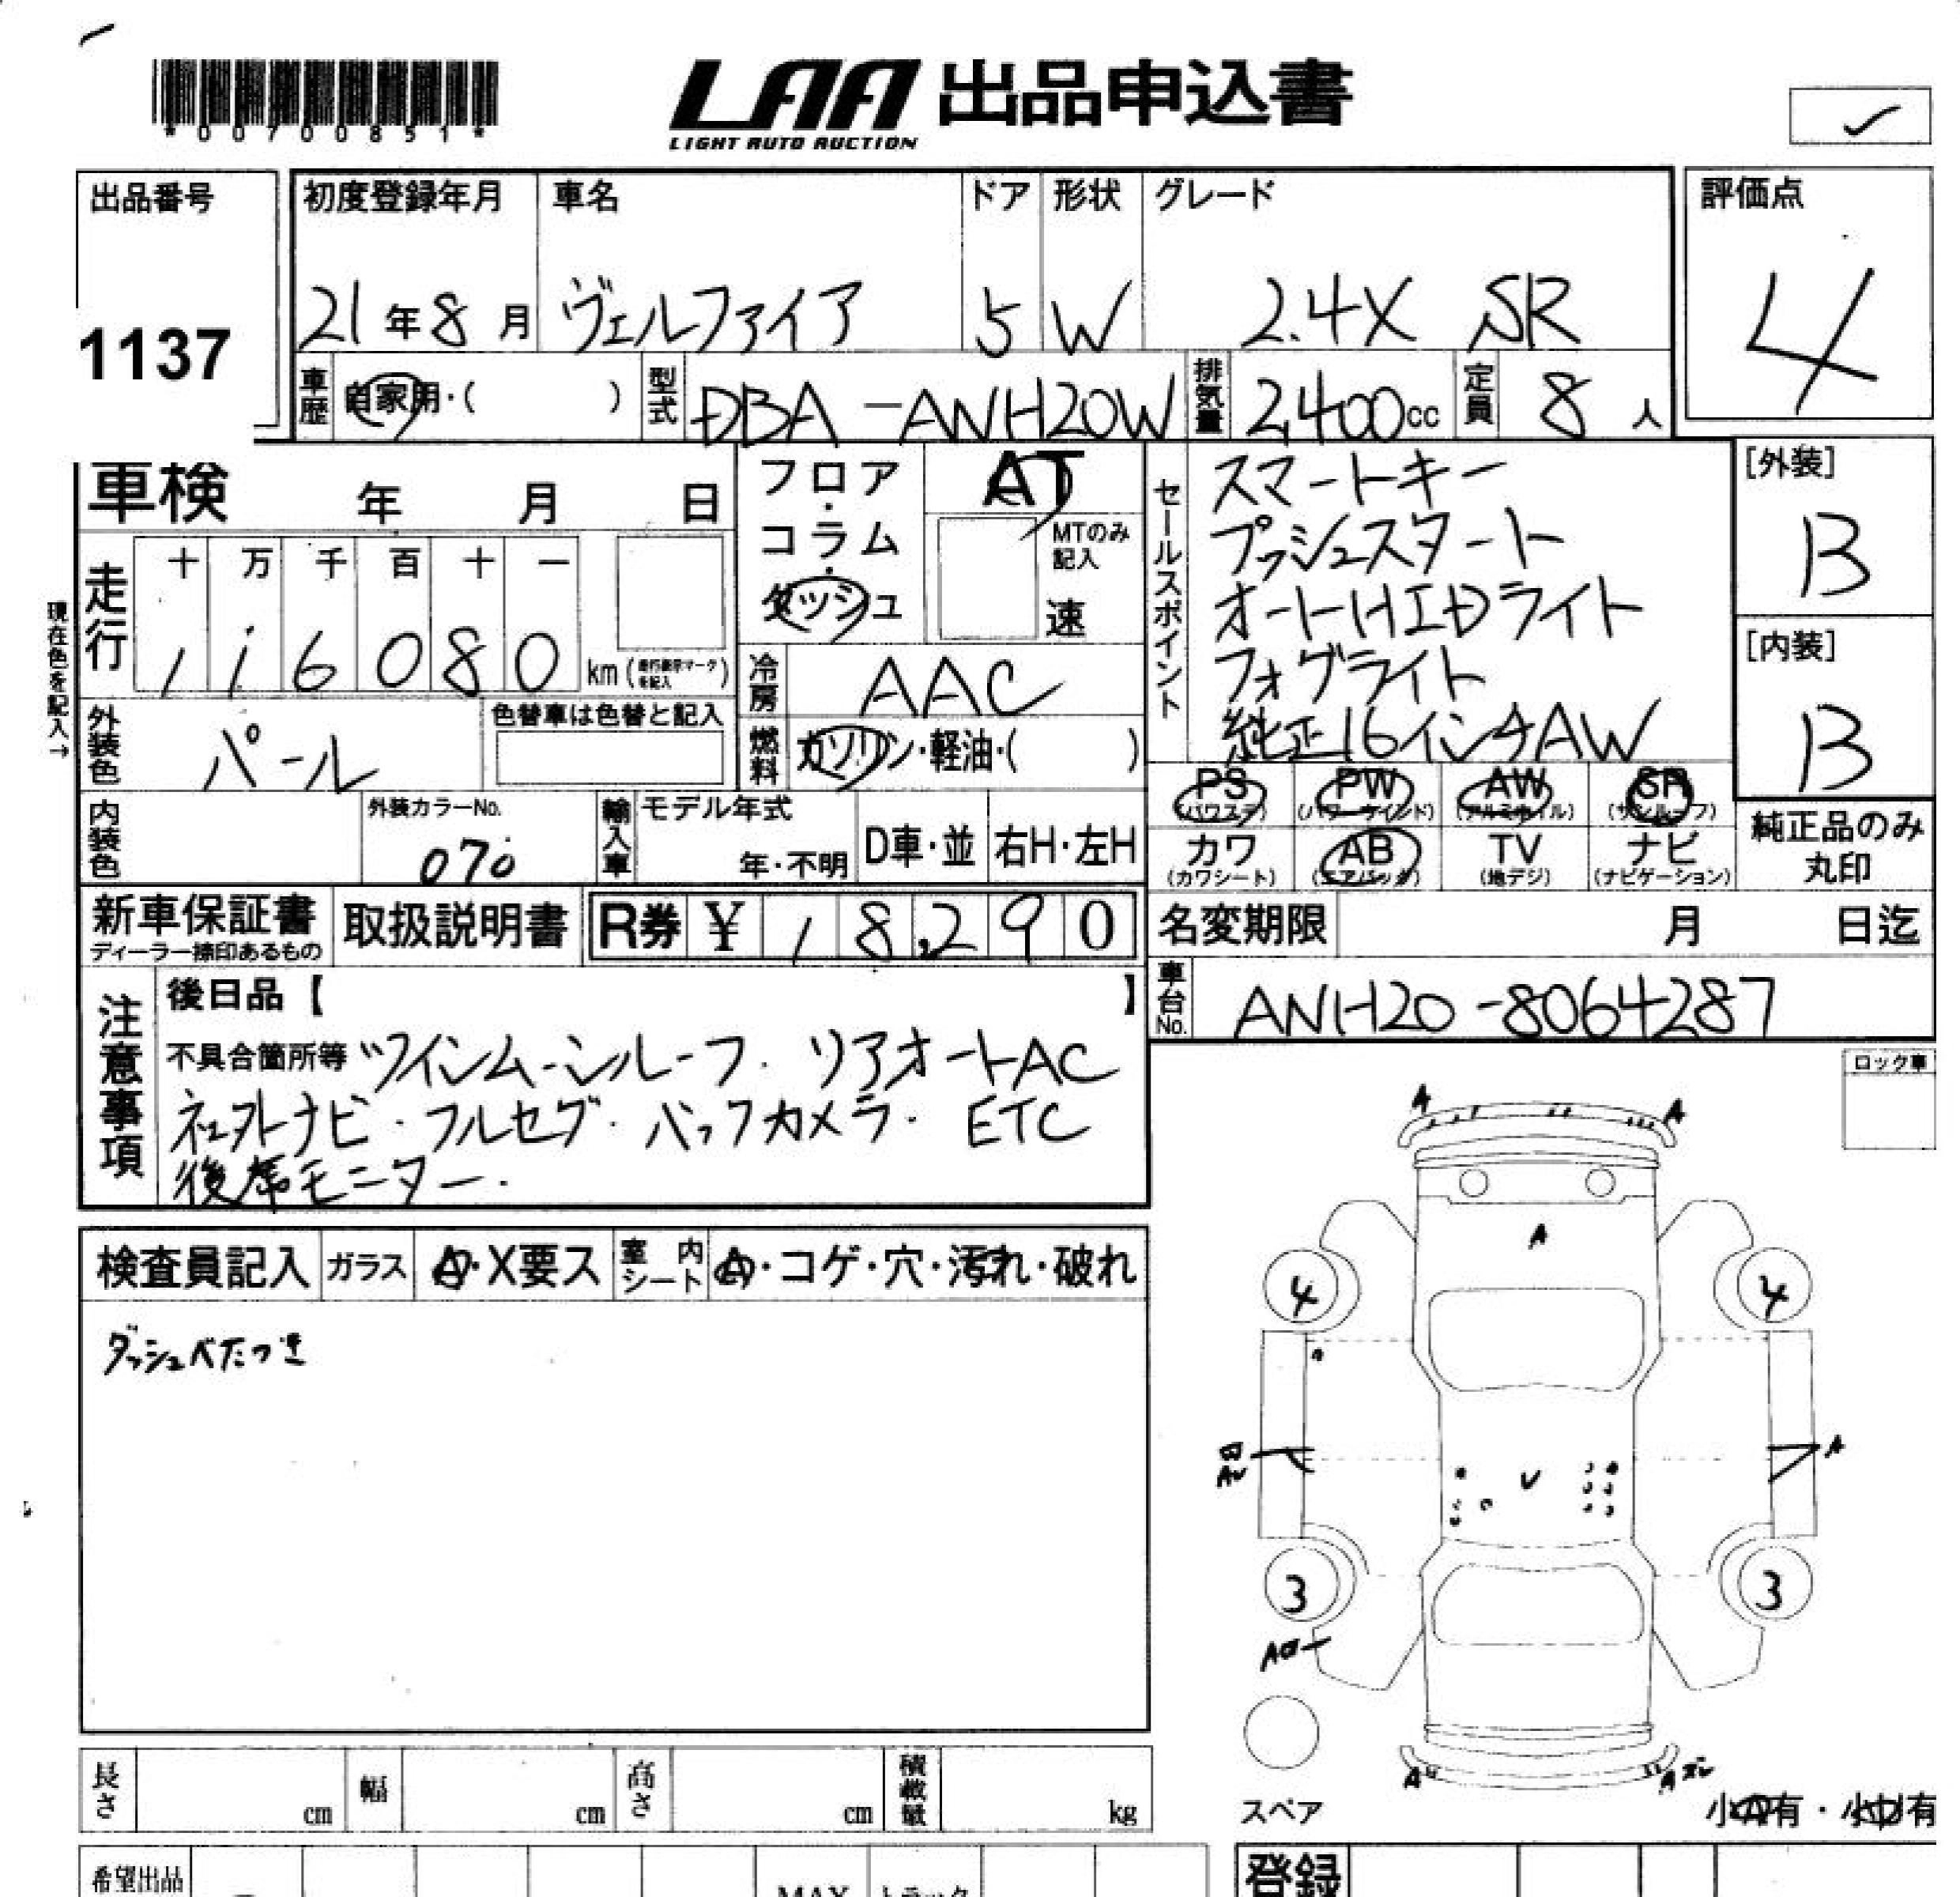 *00700851*
LAA 出品申込書
LIGHT AUTO AUCTION
出品番号
1137
初度登録年月
21年8月
車名
ヴェルファイア
ドア
5
形状
W
グレード
2.4X SR
評価点
4
車歴
自家用・( )
型式
DBA-ANH20W
排気量
2,400cc
定員
8人
車検 年 月 日
フロア・コラム・ダッシュ
AT
MTのみ記入
速
セールスポイント
スマートキー
プッシュスタート
オートHIDライト
フォグライト
純正16インチAW
[外装]
B
[内装]
B
現在色を記入→
走行
十 万 千 百 十 一
1 1 6 0 8 0 km
冷房
AAC
外装色
パール
色替車は色替と記入
燃料
ガソリン・軽油・( )
内装色
外装カラーNo.
070
輸入車
モデル年式
年・不明
D車・並
右H・左H
PS
(パワステ)
PW
(パワーウインド)
AW
(アルミホイル)
SR
(サンルーフ)
カワ
(カワシート)
AB
(エアバッグ)
TV
(地デジ)
ナビ
(ナビゲーション)
純正品のみ
丸印
新車保証書
ディーラー捺印あるもの
取扱説明書
R券 ¥ 18,290
名変期限 月 日迄
車台No.
ANH20-8064287
注意事項
後日品【 】
不具合箇所等 ツインムーンルーフ. リアオートAC
ネクストナビ・フルセグ・バックカメラ・ETC
後席モニター.
ロック車
検査員記入
ガラス
A・X要ス
室内シート
A・コゲ・穴・汚れ・破れ
ダッシュベたつき
A
A
A
4
4
B
A
3
3
A
A
スペア
小A有・小U有
長さ cm
幅 cm
高さ cm
積載量 kg
希望出品
MAX
トラック
登録